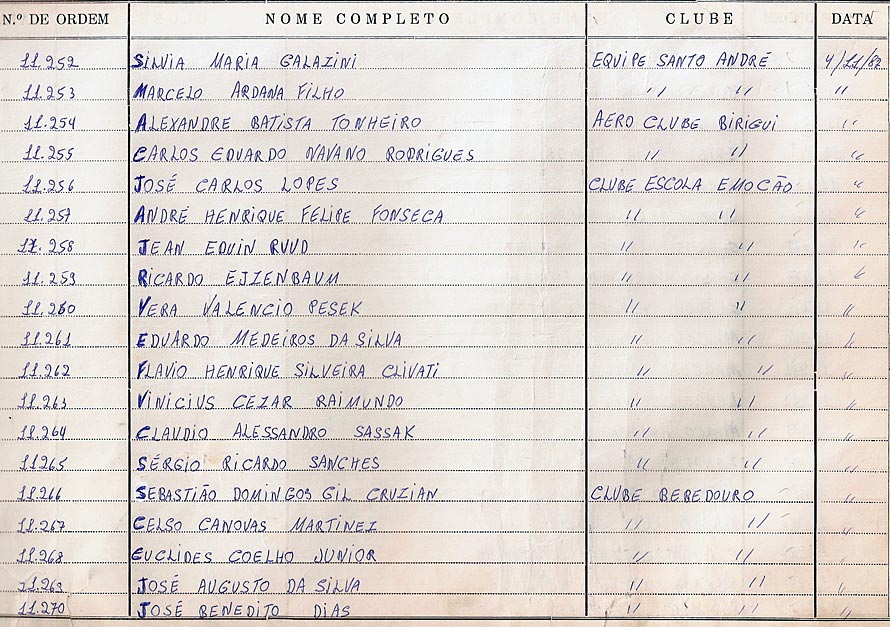 N.º DE ORDEM NOME COMPLETO CLUBE DATA
11.252 SILVIA MARIA GALAZINI EQUIPE SANTO ANDRÉ 4/11/82
11.253 MARCELO ARDANA FILHO " " "
11.254 ALEXANDRE BATISTA TONHEIRO AERO CLUBE BIRIGUI "
11.255 CARLOS EDUARDO NAVANO RODRIGUES " " "
11.256 JOSÉ CARLOS LOPES CLUBE ESCOLA EMOCÃO "
11.257 ANDRÉ HENRIQUE FELIPE FONSECA " " "
11.258 JEAN EDUIN RUUD " " "
11.259 RICARDO EJZENBAUM " " "
11.260 VERA VALENCIO PESEK " " "
11.261 EDUARDO MEDEIROS DA SILVA " " "
11.262 FLAVIO HENRIQUE SILVEIRA CLIVATI " " "
11.263 VINICIUS CEZAR RAIMUNDO " " "
11.264 CLAUDIO ALESSANDRO SASSAK " " "
11265 SÉRGIO RICARDO SANCHES " " "
11.266 SEBASTIÃO DOMINGOS GIL CRUZIAN CLUBE BEBEDOURO "
11.267 CELSO CANOVAS MARTINEZ " " "
11.268 EUCLIDES COELHO JUNIOR " " "
11.269 JOSÉ AUGUSTO DA SILVA " " "
11.270 JOSÉ BENEDITO DIAS " " "